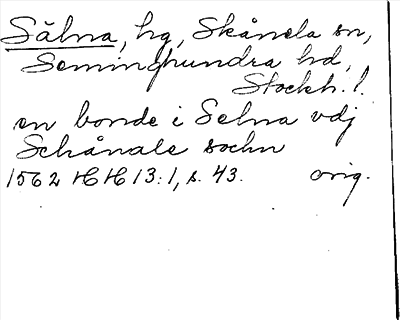 Sälna, hg, Skånela sn,
Seminghundra hd,
Stockh. l.
en bonde i Selna vdj
Schånale sochn
1562 HH 13:1, s. 43. orig.